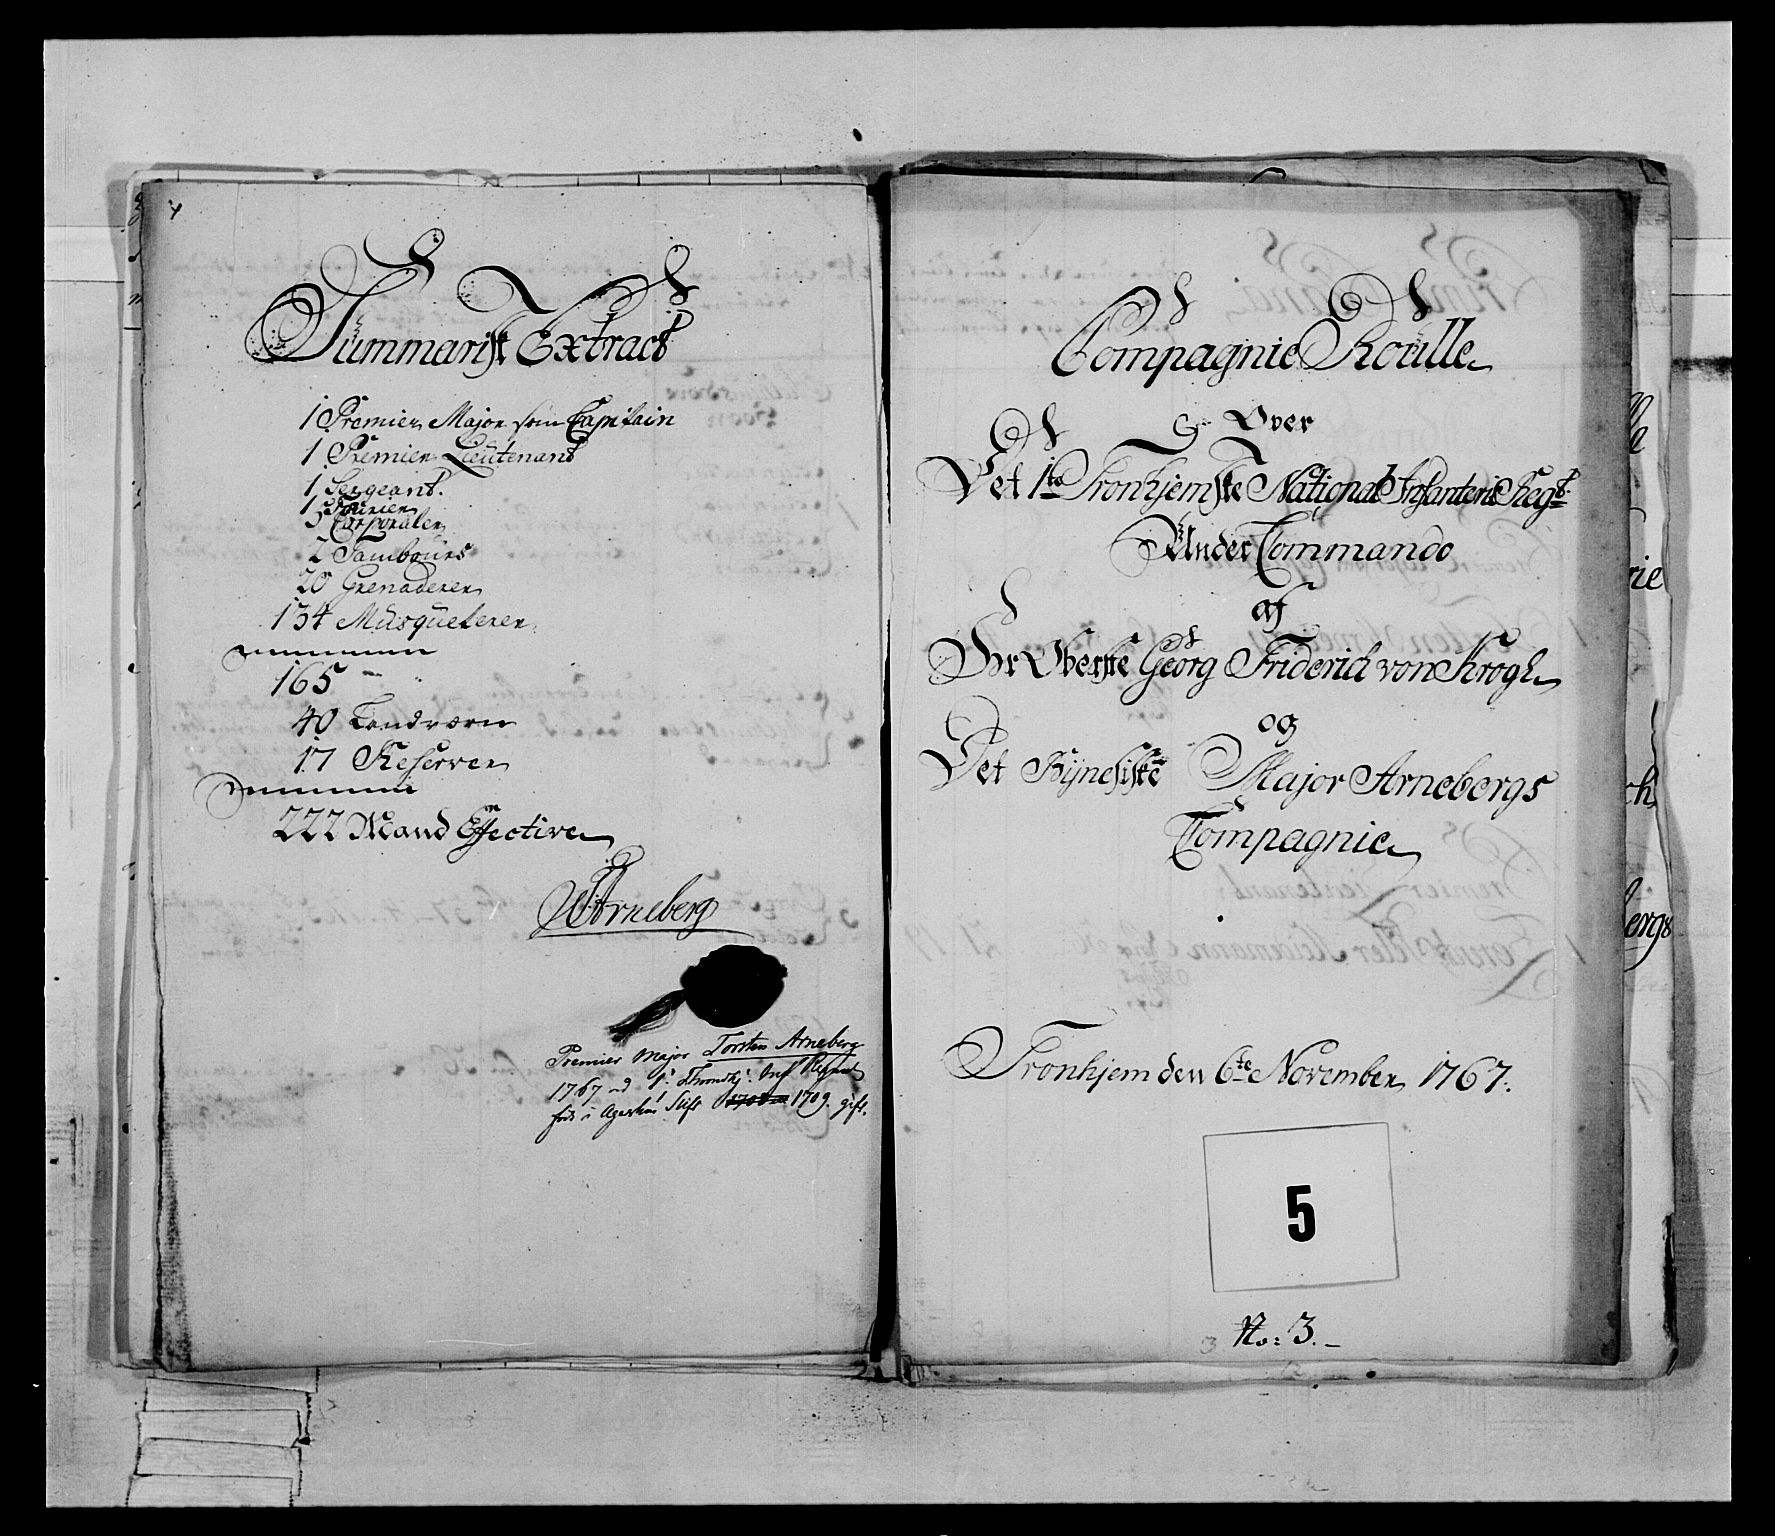 Summarisk Extract
1 Premier Major som Capitain
1 Premier Lieutenant
1 Sergeant.
1 Fourier
5 Corporaler
2 Tambours
20 Grenaderer
134 Musqueterer
165
40 Landværn
17 Reserver
222 Mand Effective
TArneberg
Premier Major Torsten Arneberg
1767 ved 1. Throndhj. Inf Regmt
født i Agershus Stift 1709. gift.
Compagnie Roulle
Over
Det 1te Tronhjemske National Infanterie Regt:
Under Commando
af
Hr Oberste Georg Friderich von Krogh
og
Det Bÿnesiske Major Arnebergs
Compagnie
Tronhjem den 6te November 1767.
5
No: 3.
3